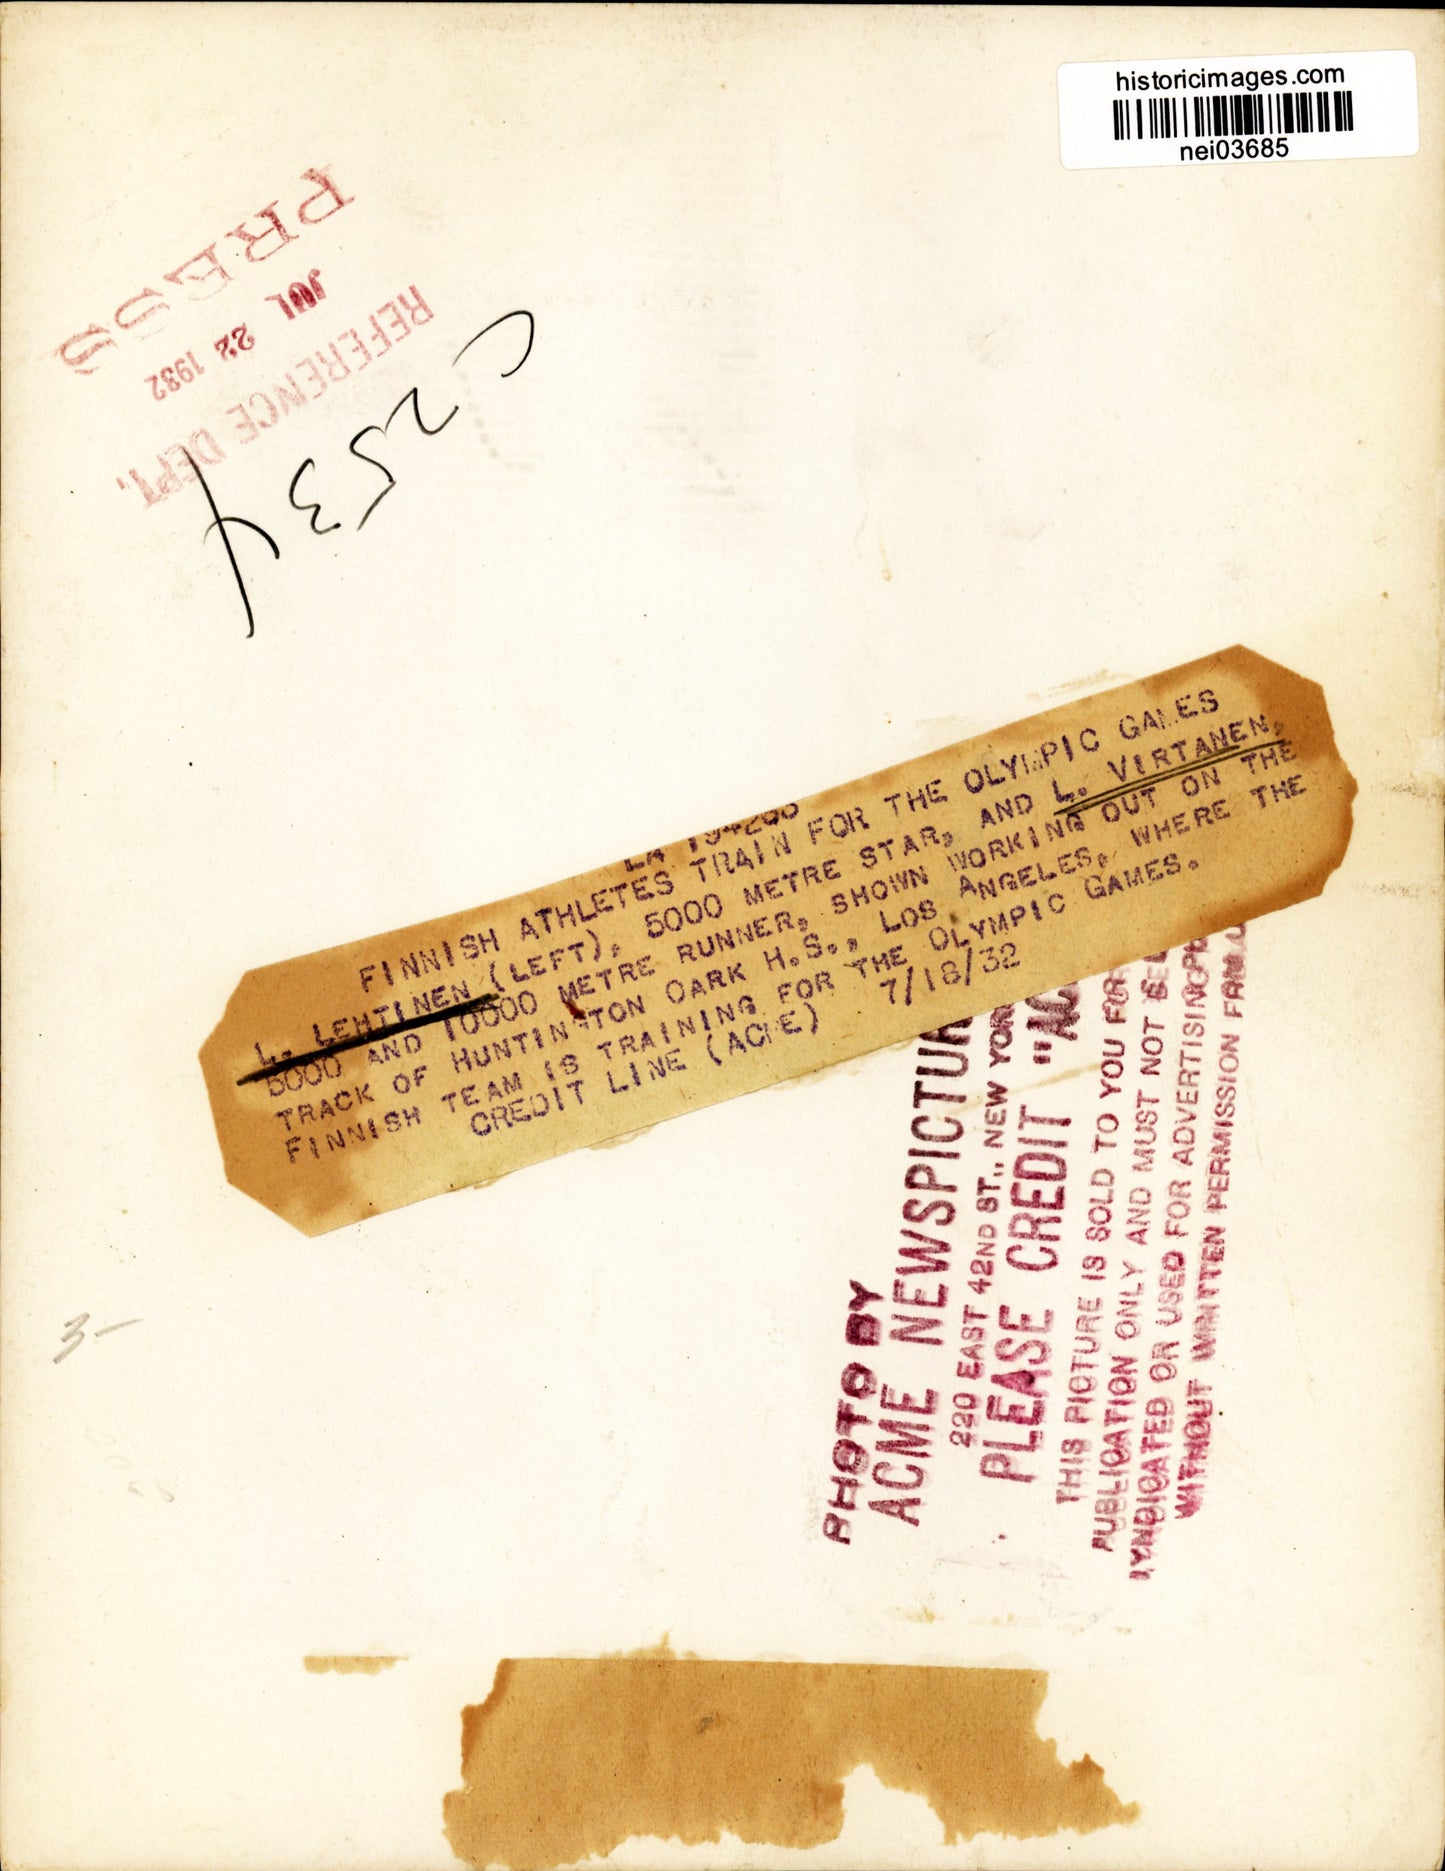 historicimages.com
nei03685
PRESS
JUL 22 1932
REFERENCE DEPT.
C2534
FINNISH ATHLETES TRAIN FOR THE OLYMPIC GAMES
L. LEHTINEN (LEFT), 5000 METRE STAR, AND L. VIRTANEN,
5000 AND 10000 METRE RUNNER, SHOWN WORKING OUT ON THE
TRACK OF HUNTINGTON OARK H.S., LOS ANGELES, WHERE THE
FINNISH TEAM IS TRAINING FOR THE OLYMPIC GAMES.
CREDIT LINE (ACME) 7/18/32
3-
PHOTO BY
ACME NEWSPICTUR
220 EAST 42ND ST., NEW YOR
PLEASE CREDIT "AC
THIS PICTURE IS SOLD TO YOU FOR
PUBLICATION ONLY AND MUST NOT BE
SYNDICATED OR USED FOR ADVERTISING
WITHOUT WRITTEN PERMISSION FROM